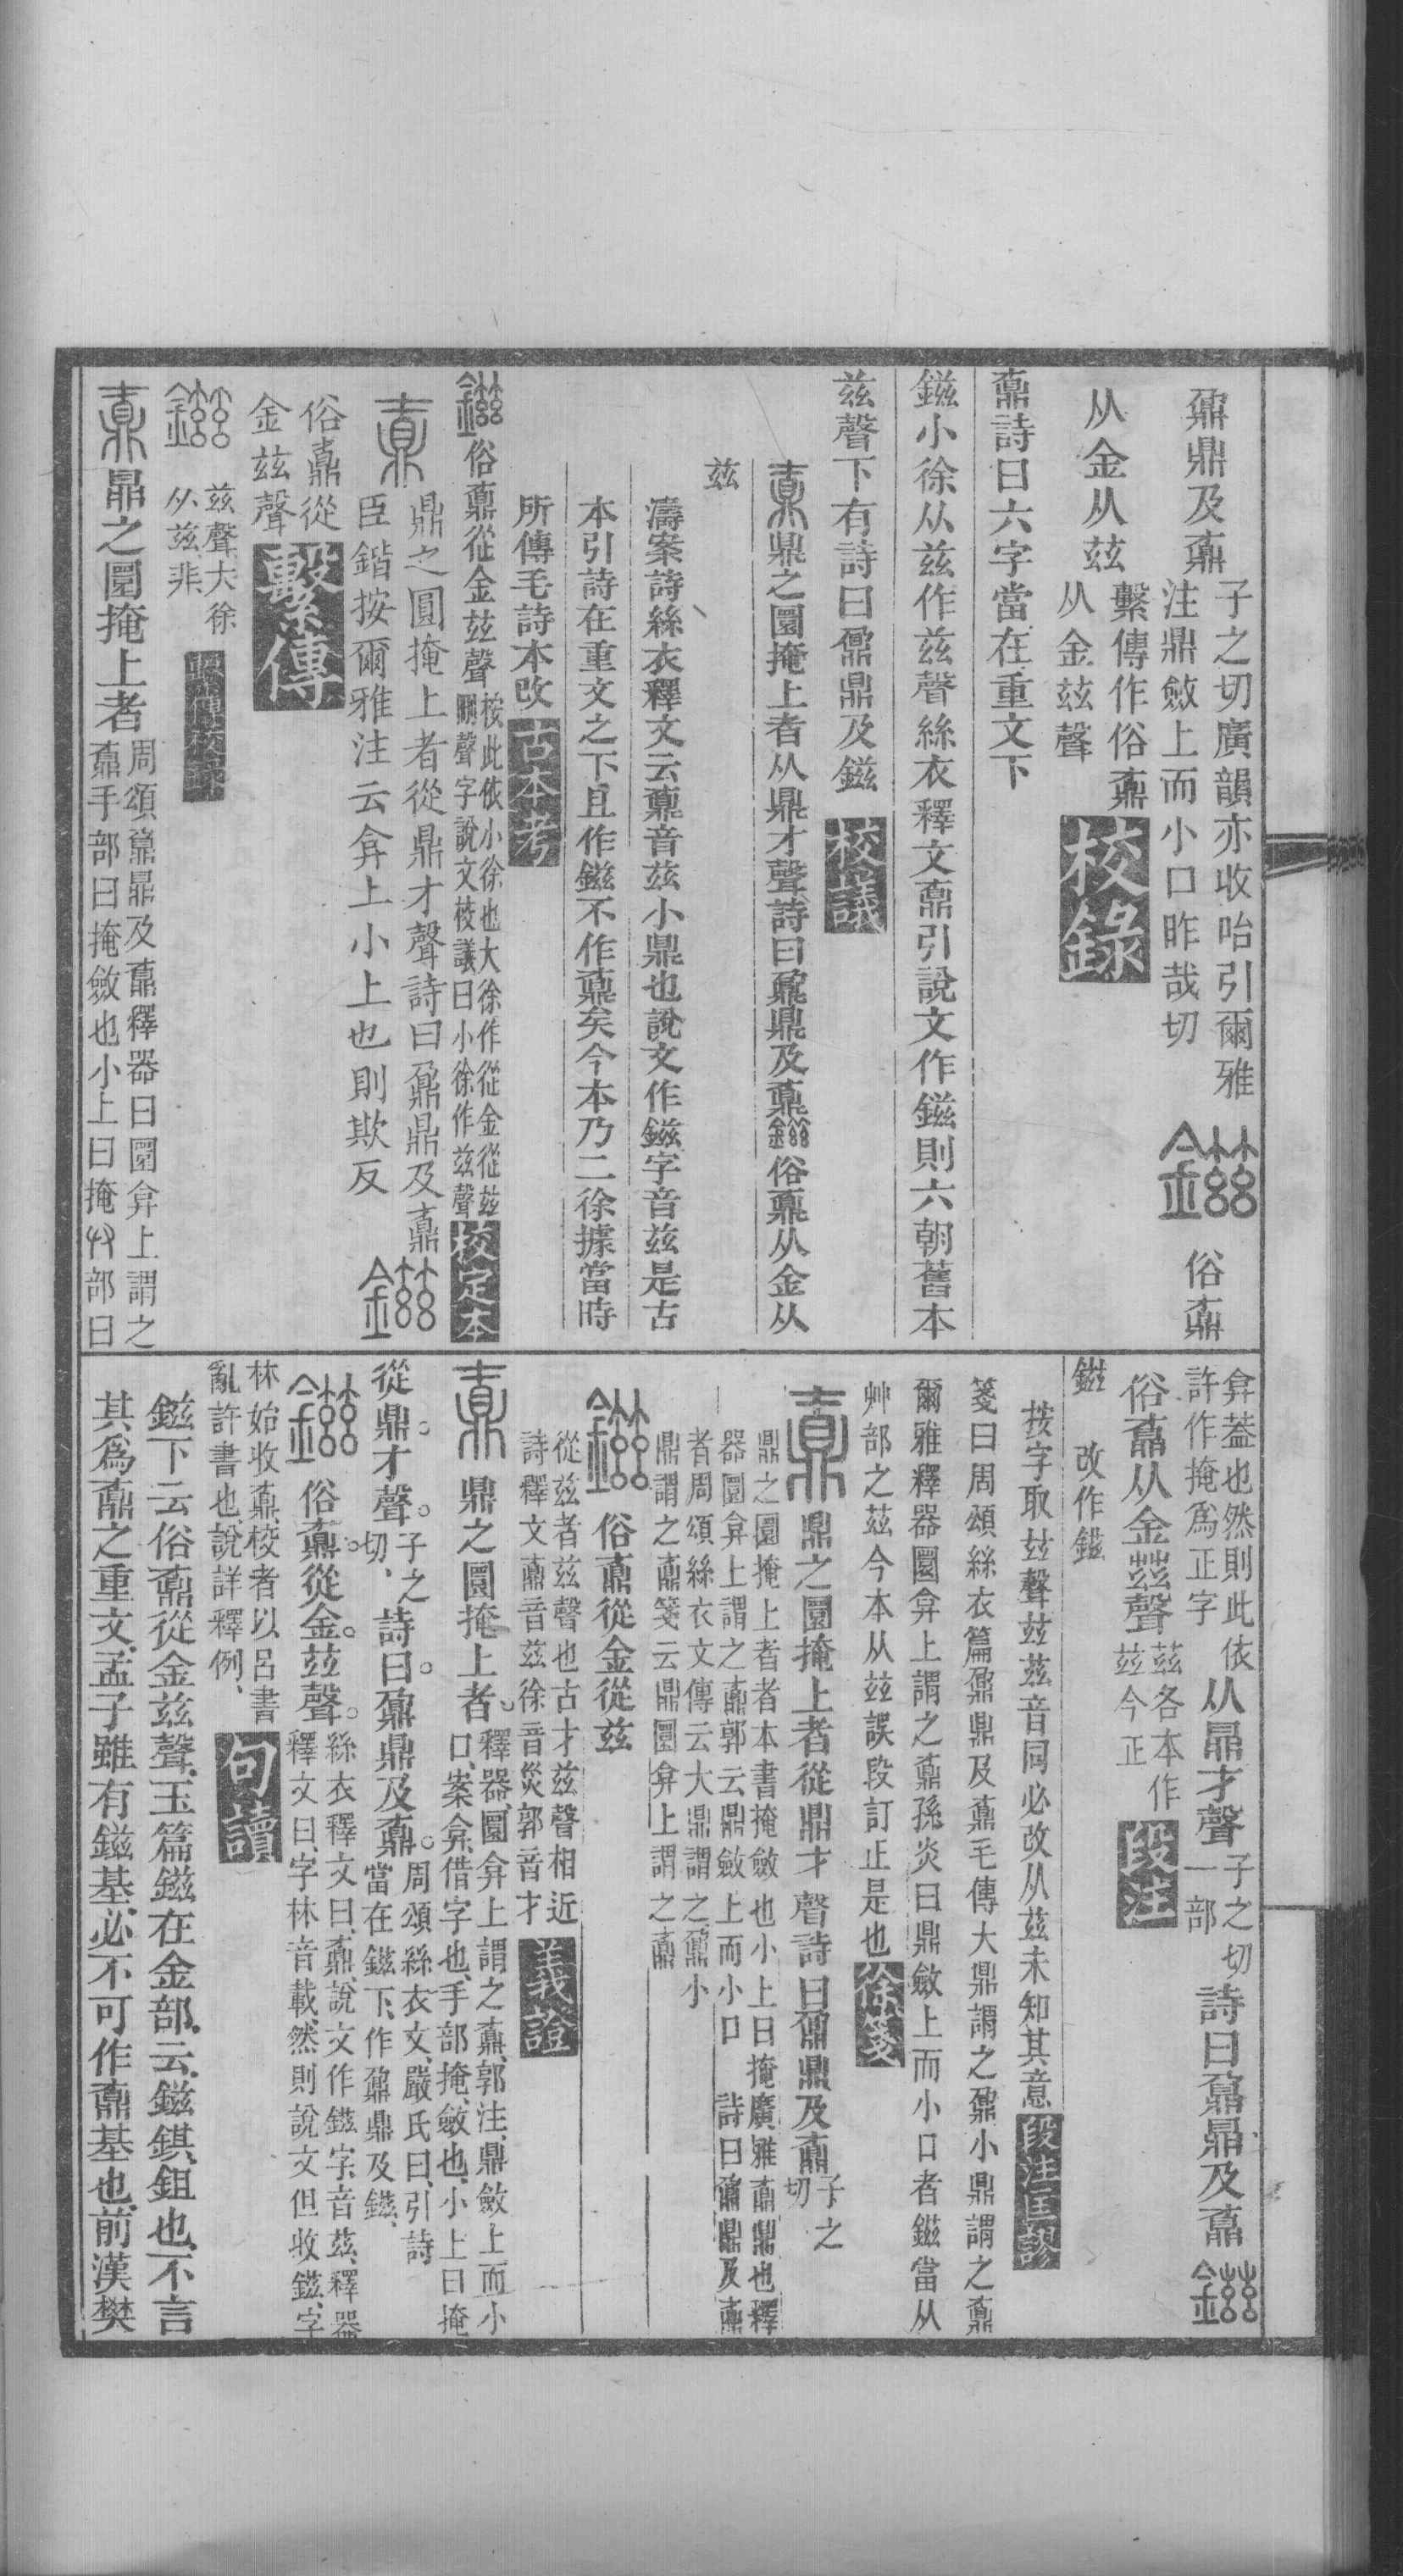 鼐鼎及鼒
子之切廣韻亦收咍引爾雅
注鼎斂上而小口昨哉切
鎡
俗鼒
从金从茲
繫傳作俗鼒
从金茲聲
校錄
鼒詩曰六字當在重文下
鎡小徐从茲作茲聲絲衣釋文鼒引說文作鎡則六朝舊本
茲聲下有詩曰鼐鼎及鎡
校議
鼒鼎之圜掩上者从鼎才聲詩曰鼐鼎及鼒鎡俗鼒从金从
茲
濤案詩絲衣釋文云鼒音茲小鼎也說文作鎡字音茲是古
本引詩在重文之下且作鎡不作鼒矣今本乃二徐據當時
所傳毛詩本改
古本考
鎡俗鼒從金茲聲
按此依小徐也大徐作從金從茲
刪聲字說文校議曰小徐作茲聲
校定本
鼒
鼎之圓掩上者從鼎才聲詩曰鼐鼎及鼒
臣鍇按爾雅注云弇上小上也則欺反
鎡
俗鼒從
金茲聲
繫傳
鎡
茲聲大徐
从茲非
繫傳校錄
鼒鼎之圜掩上者
周頌鼐鼎及鼒釋器曰圜弇上謂之
鼒手部曰掩斂也小上曰掩𠬞部曰
弇蓋也然則此依
許作掩爲正字
从鼎才聲
子之切
一部
詩曰鼐鼎及鼒
鎡
俗鼒从金茲聲
茲各本作
茲今正
段注
鎡 改作鎡
按字取茲聲茲茲音同必改从茲未知其意
段注匡謬
箋曰周頌絲衣篇鼐鼎及鼒毛傳大鼎謂之鼐小鼎謂之鼒
爾雅釋器圜弇上謂之鼒孫炎曰鼎斂上而小口者鎡當从
艸部之茲今本从茲誤段訂正是也
徐箋
鼒鼎之圜掩上者從鼎才聲詩曰鼐鼎及鼒
子之
切
鼎之圜掩上者者本書掩斂也小上曰掩廣雅鼒鼎也釋
器圜弇上謂之鼒郭云鼎斂上而小口 詩曰鼐鼎及鼒
者周頌絲衣文傳云大鼎謂之鼐小
鼎謂之鼒箋云鼎圜弇上謂之鼒
鎡俗鼒從金從茲
從茲者茲聲也古才茲聲相近
詩釋文鼒音茲徐音災郭音才
義證
鼒鼎之圜掩上者
釋器圜弇上謂之鼒郭注鼎斂上而小
口案弇借字也手部掩斂也小上曰掩
從鼎才聲
子之
切
詩曰鼐鼎及鼒
周頌絲衣文嚴氏曰引詩
當在鎡下作鼐鼎及鎡
鎡俗鼒從金茲聲
絲衣釋文曰鼒說文作鎡字音茲釋器
釋文曰字林音載然則說文但收鎡字
林始收鼒校者以呂書
亂許書也說詳釋例
句讀
鎡下云俗鼒從金茲聲玉篇鎡在金部云鎡錤鉏也不言
其爲鼒之重文孟子雖有鎡基必不可作鼒基也前漢樊